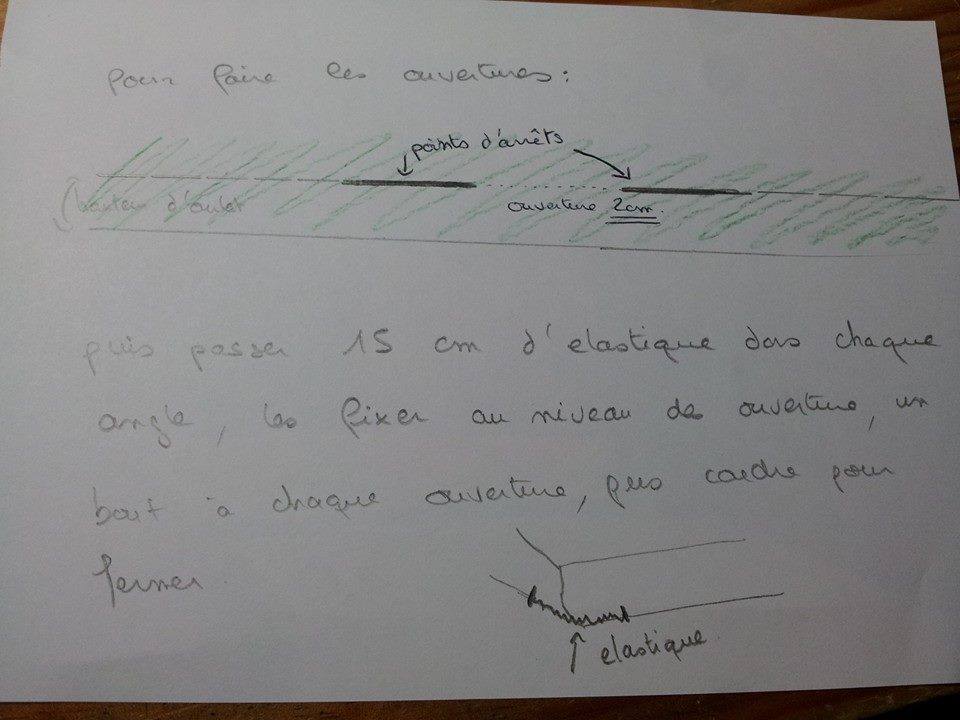 pour faire les ouvertures :
points d'arrêts
ouverture 2cm.
hauteur d'oulet
puis passer 15 cm d'elastique dans chaque
angle, les fixer au niveau des ouverture, un
bout à chaque ouverture, puis coudre pour
fermer
elastique